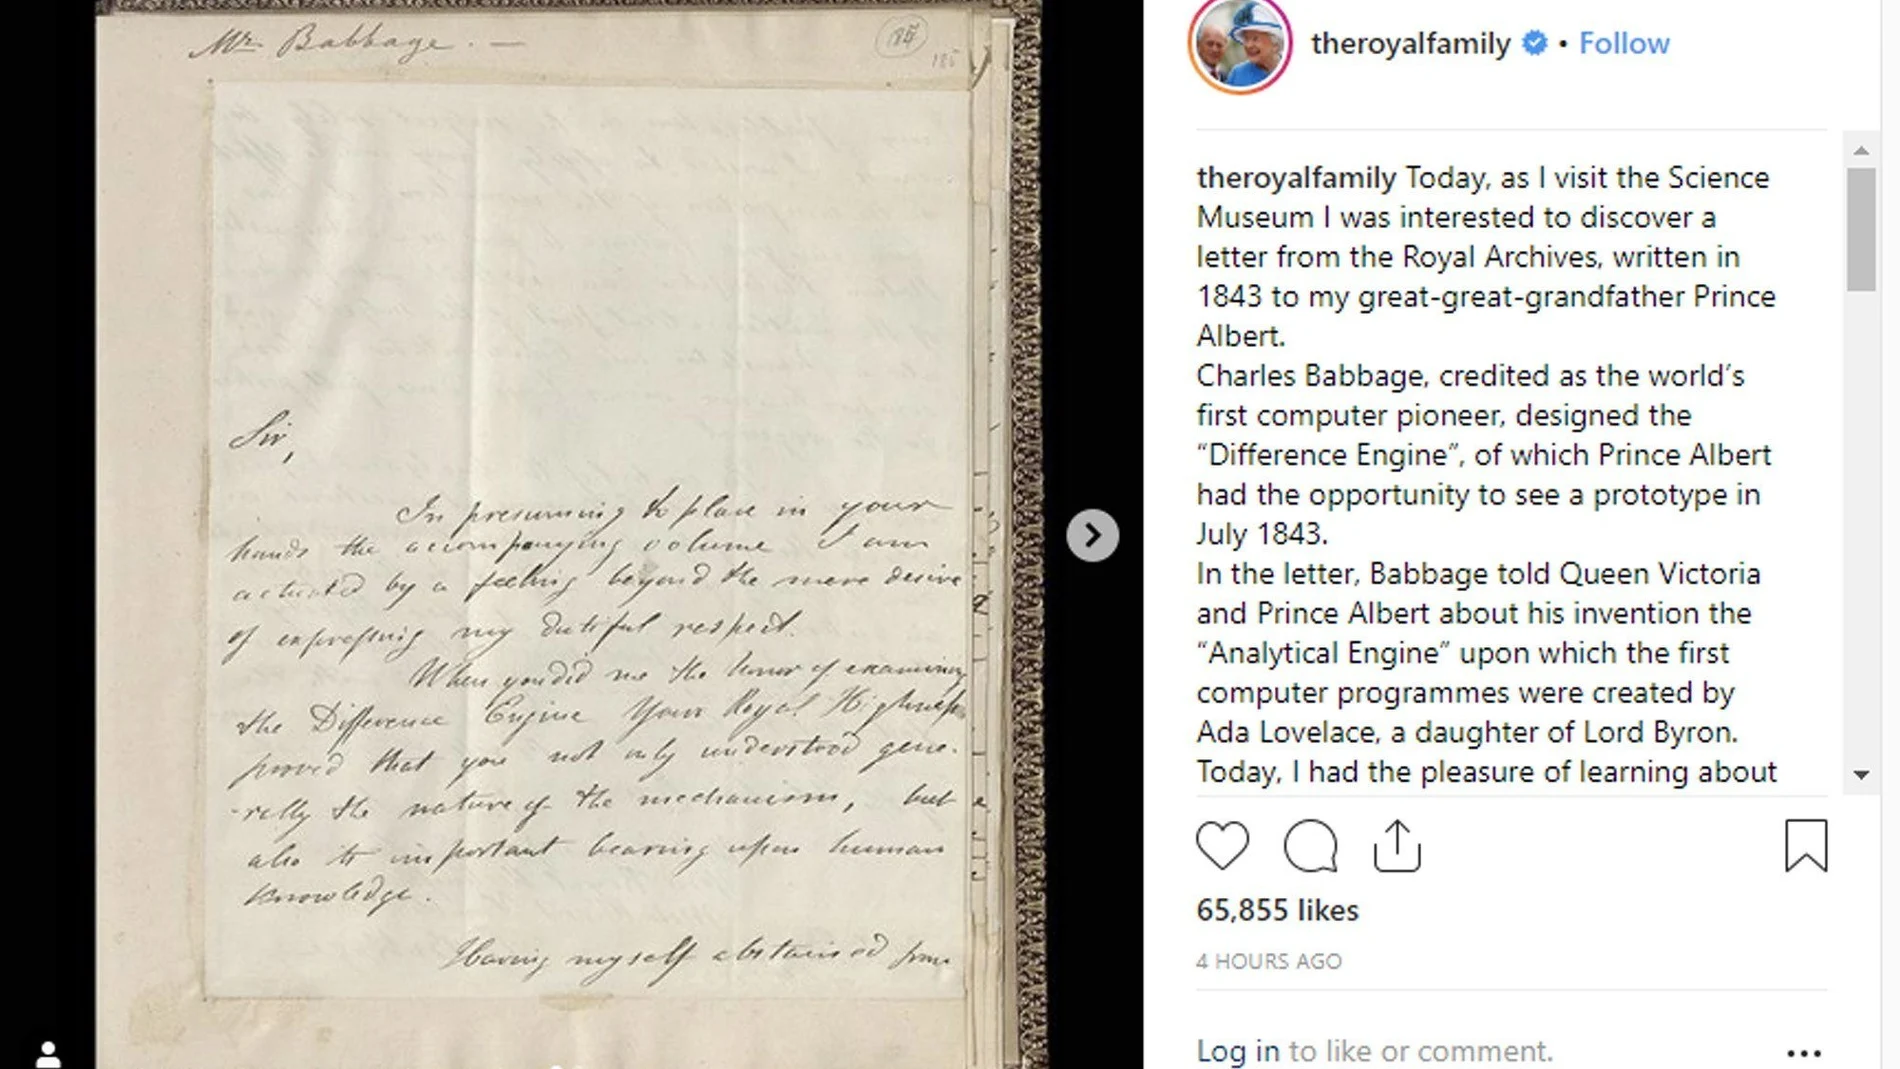 Mr. Babbage. —
185
Sir,
In presuming to place in your
hands the accompanying volume I am
actuated by a feeling beyond the mere desire
of expressing my dutiful respect.
When you did me the honor of examining
the Difference Engine Your Royal Highness
proved that you not only understood gene-
-rally the nature of the mechanism, but
also its important bearing upon human
knowledge.
Having myself abstained from
theroyalfamily • Follow
theroyalfamily Today, as I visit the Science
Museum I was interested to discover a
letter from the Royal Archives, written in
1843 to my great-great-grandfather Prince
Albert.
Charles Babbage, credited as the world’s
first computer pioneer, designed the
“Difference Engine”, of which Prince Albert
had the opportunity to see a prototype in
July 1843.
In the letter, Babbage told Queen Victoria
and Prince Albert about his invention the
“Analytical Engine” upon which the first
computer programmes were created by
Ada Lovelace, a daughter of Lord Byron.
Today, I had the pleasure of learning about
65,855 likes
4 HOURS AGO
Log in to like or comment.